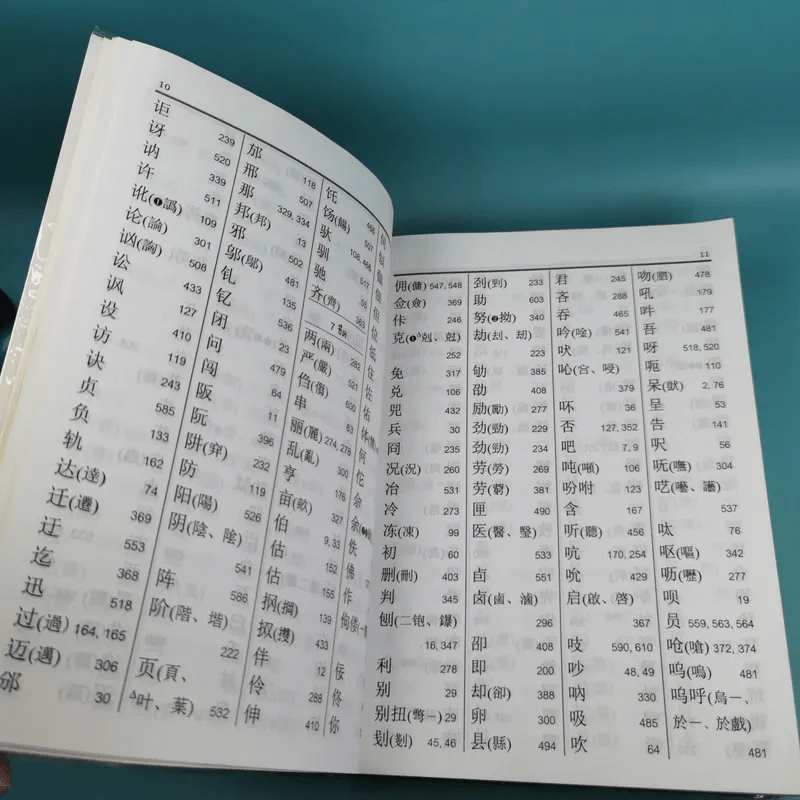 10
讵 239
讶 520
讷 339
许 511
讹(❶譌) 109
论(論) 301
讻(詾) 508
讼 433
讽 127
设 410
访 119
诀 243
贞 585
负 133
轨 162
达(達) 74
迁(遷) 369
迂 553
迄 368
迅 518
过(過) 164, 165
迈(邁) 306
邠 30
邡 118
邢 507
那 329, 334
邦(邦) 13
邪 502
邬(鄔) 481
钆 135
钇 536
闭 23
问 479
闯 64
阪 11
阮 396
阱(穽) 232
防 119
阳(陽) 526
阴(陰、隂) 541
阵 586
阶(階、堦) 222
页(頁、
△叶、葉) 532
饦 456
饧(餳) 507
驮 108, 456
驯 517
驰 55
齐(齊) 363
7 畫
两(兩) 282
严(嚴) 521
㑇(㑳) 600
串 63
丽(麗) 274, 279
乱(亂) 300
亨 176
亩(畝) 327
伯 9, 33
估
估 155
㧏(掆) 139
伴 12
伶 288
伸 410
位
低
住
佐
佑
体
何
佗
余
佚
佛
作
佞
佟
你
11
佣(傭) 547, 548
佥(僉) 369
佧 246
克(❶△剋、尅)
252
免 317
兑 106
兕 432
兵 30
冏 235
况(況) 260
冶 531
冷 273
冻(凍) 99
初 60
删(刪) 403
判 345
刨(二铇、鑤)
16, 347
利 278
别 29
别扭(彆一) 29
刬(剗) 45, 46
刭(剄) 233
助 603
努(❷拗) 340
劫(刦、刼)
223
劬 385
劭 408
励(勵) 277
劲(勁) 230
劲(勁) 234
劳(勞) 269
劳(藭) 381
匣 490
医(醫、毉)
533
卣 551
卤(鹵、滷)
296
卲 408
即 200
却(卻) 388
卵 300
县(縣) 494
君 245
吝 288
吞 465
吟(唫) 541
吠 121
吣(唚、㖣)
379
吥 36
否 127, 352
吧 7, 9
吨(噸) 106
吩咐 123
含 167
听(聽) 456
吭 170, 254
吮 429
启(啟、啓)
367
吱 590, 610
吵 48, 49
呐 330
吸 485
吹 64
吻(脗) 478
吼 179
吽 177
吾 481
呀 518, 520
呃 110
呆(獃) 2, 76
呈 53
告 141
呎 56
呒(嘸) 304
呓(囈、讛)
537
呔 76
呕(嘔) 342
呖(嚦) 277
呗 19
员 559, 563, 564
呛(嗆) 372, 374
呜(嗚) 481
呜呼(烏一、
於一、於戲)
481